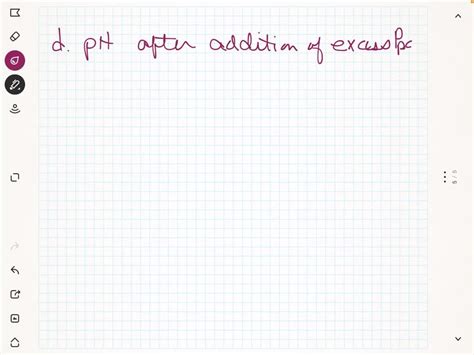 d. pH after addition of excess
5 / 5